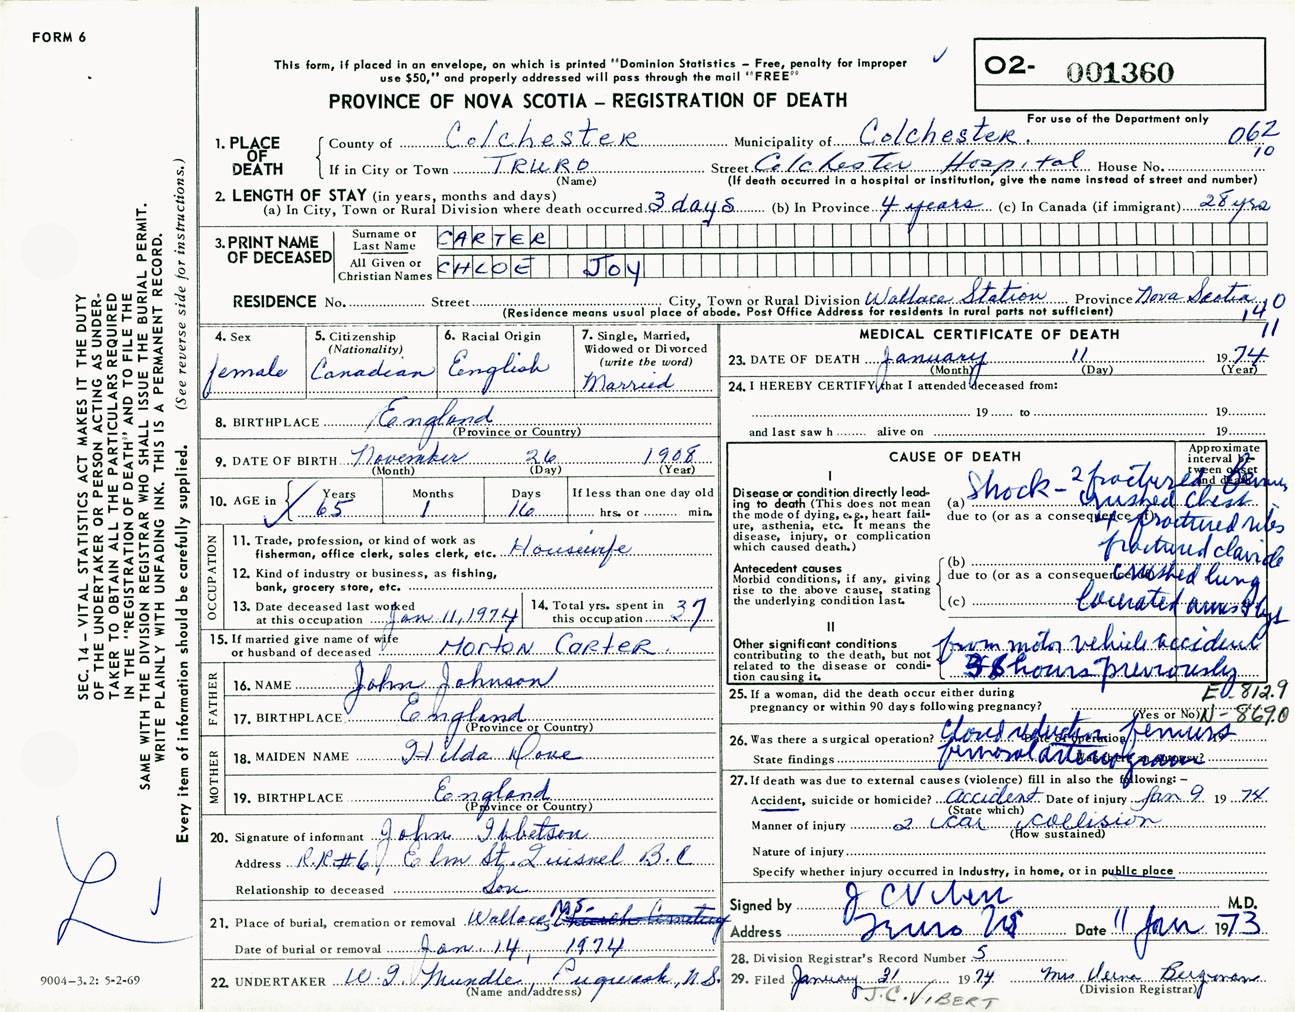 FORM 6
This form, if placed in an envelope, on which is printed "Dominion Statistics – Free, penalty for improper
use $50," and properly addressed will pass through the mail "FREE"
PROVINCE OF NOVA SCOTIA – REGISTRATION OF DEATH
O2- 001360
For use of the Department only
062
10
1. PLACE OF DEATH
County of Colchester Municipality of Colchester.
If in City or Town TRURO Street Colchester Hospital House No.
(Name) (If death occurred in a hospital or institution, give the name instead of street and number)
2. LENGTH OF STAY (in years, months and days)
(a) In City, Town or Rural Division where death occurred 3 days (b) In Province 4 years (c) In Canada (if immigrant) 28 yrs
3. PRINT NAME OF DECEASED
Surname or Last Name CARTER
All Given or Christian Names CHLOE JOY
RESIDENCE No. Street City, Town or Rural Division Wallace Station Province Nova Scotia
(Residence means usual place of abode. Post Office Address for residents in rural parts not sufficient)
140
11
4. Sex female
5. Citizenship (Nationality) Canadian
6. Racial Origin English
7. Single, Married, Widowed or Divorced (write the word) Married
8. BIRTHPLACE England
(Province or Country)
9. DATE OF BIRTH November 26 1908
(Month) (Day) (Year)
10. AGE in Years 65 Months 1 Days 16 If less than one day old hrs. or min.
OCCUPATION
11. Trade, profession, or kind of work as
fisherman, office clerk, sales clerk, etc. Housewife
12. Kind of industry or business, as fishing,
bank, grocery store, etc.
13. Date deceased last worked
at this occupation Jan 11, 1974
14. Total yrs. spent in
this occupation 37
15. If married give name of wife
or husband of deceased MORTON CARTER.
FATHER
16. NAME John Johnson
17. BIRTHPLACE England
(Province or Country)
MOTHER
18. MAIDEN NAME Hilda
19. BIRTHPLACE England
(Province or Country)
20. Signature of informant John Ibbetson
Address R.R#6, Elm St. Quisnel B.C
Relationship to deceased Son
21. Place of burial, cremation or removal Wallace N.S. Cemetery
Date of burial or removal Jan. 14, 1974
22. UNDERTAKER Mundle, Pugwash, N.S.
(Name and/address)
MEDICAL CERTIFICATE OF DEATH
23. DATE OF DEATH January 11 1974
(Month) (Day) (Year)
24. I HEREBY CERTIFY that I attended deceased from:
19 to 19
and last saw h alive on 19
CAUSE OF DEATH
Approximate interval between onset and death
I
Disease or condition directly leading to death (This does not mean the mode of dying, e.g., heart failure, asthenia, etc. It means the disease, injury, or complication which caused death.)
(a) Shock – 2 fractured femurs
crushed chest
due to (or as a consequence of)
4 fractured ribs
fractured clavicle
Antecedent causes
Morbid conditions, if any, giving rise to the above cause, stating the underlying condition last.
(b)
due to (or as a consequence of)
crushed lung
(c)
lacerated arms & legs
II
Other significant conditions
contributing to the death, but not related to the disease or condition causing it.
from motor vehicle accident
38 hours previously
E 812.9
N-869.0
25. If a woman, did the death occur either during
pregnancy or within 90 days following pregnancy?
(Yes or No)
26. Was there a surgical operation? closed reduction femurs
Date of operation
State findings femoral arteriogram
27. If death was due to external causes (violence) fill in also the following: –
Accident, suicide or homicide? accident Date of injury Jan 9 1974
(State which)
Manner of injury 2 car collision
(How sustained)
Nature of injury
Specify whether injury occurred in Industry, in home, or in public place
Signed by J C Vibert M.D.
Address Truro NS Date 11 Jan 1973
28. Division Registrar's Record Number 5
29. Filed January 21 1974 Mrs Verna Bergman
(Division Registrar)
J.C. VIBERT
SEC. 14 – VITAL STATISTICS ACT MAKES IT THE DUTY
OF THE UNDERTAKER OR PERSON ACTING AS UNDER-
TAKER TO OBTAIN ALL THE PARTICULARS REQUIRED
IN THE "REGISTRATION OF DEATH" AND TO FILE THE
SAME WITH THE DIVISION REGISTRAR WHO SHALL ISSUE THE BURIAL PERMIT.
WRITE PLAINLY WITH UNFADING INK. THIS IS A PERMANENT RECORD.
Every item of information should be carefully supplied. (See reverse side for instructions.)
9004-3.2: 5-2-69